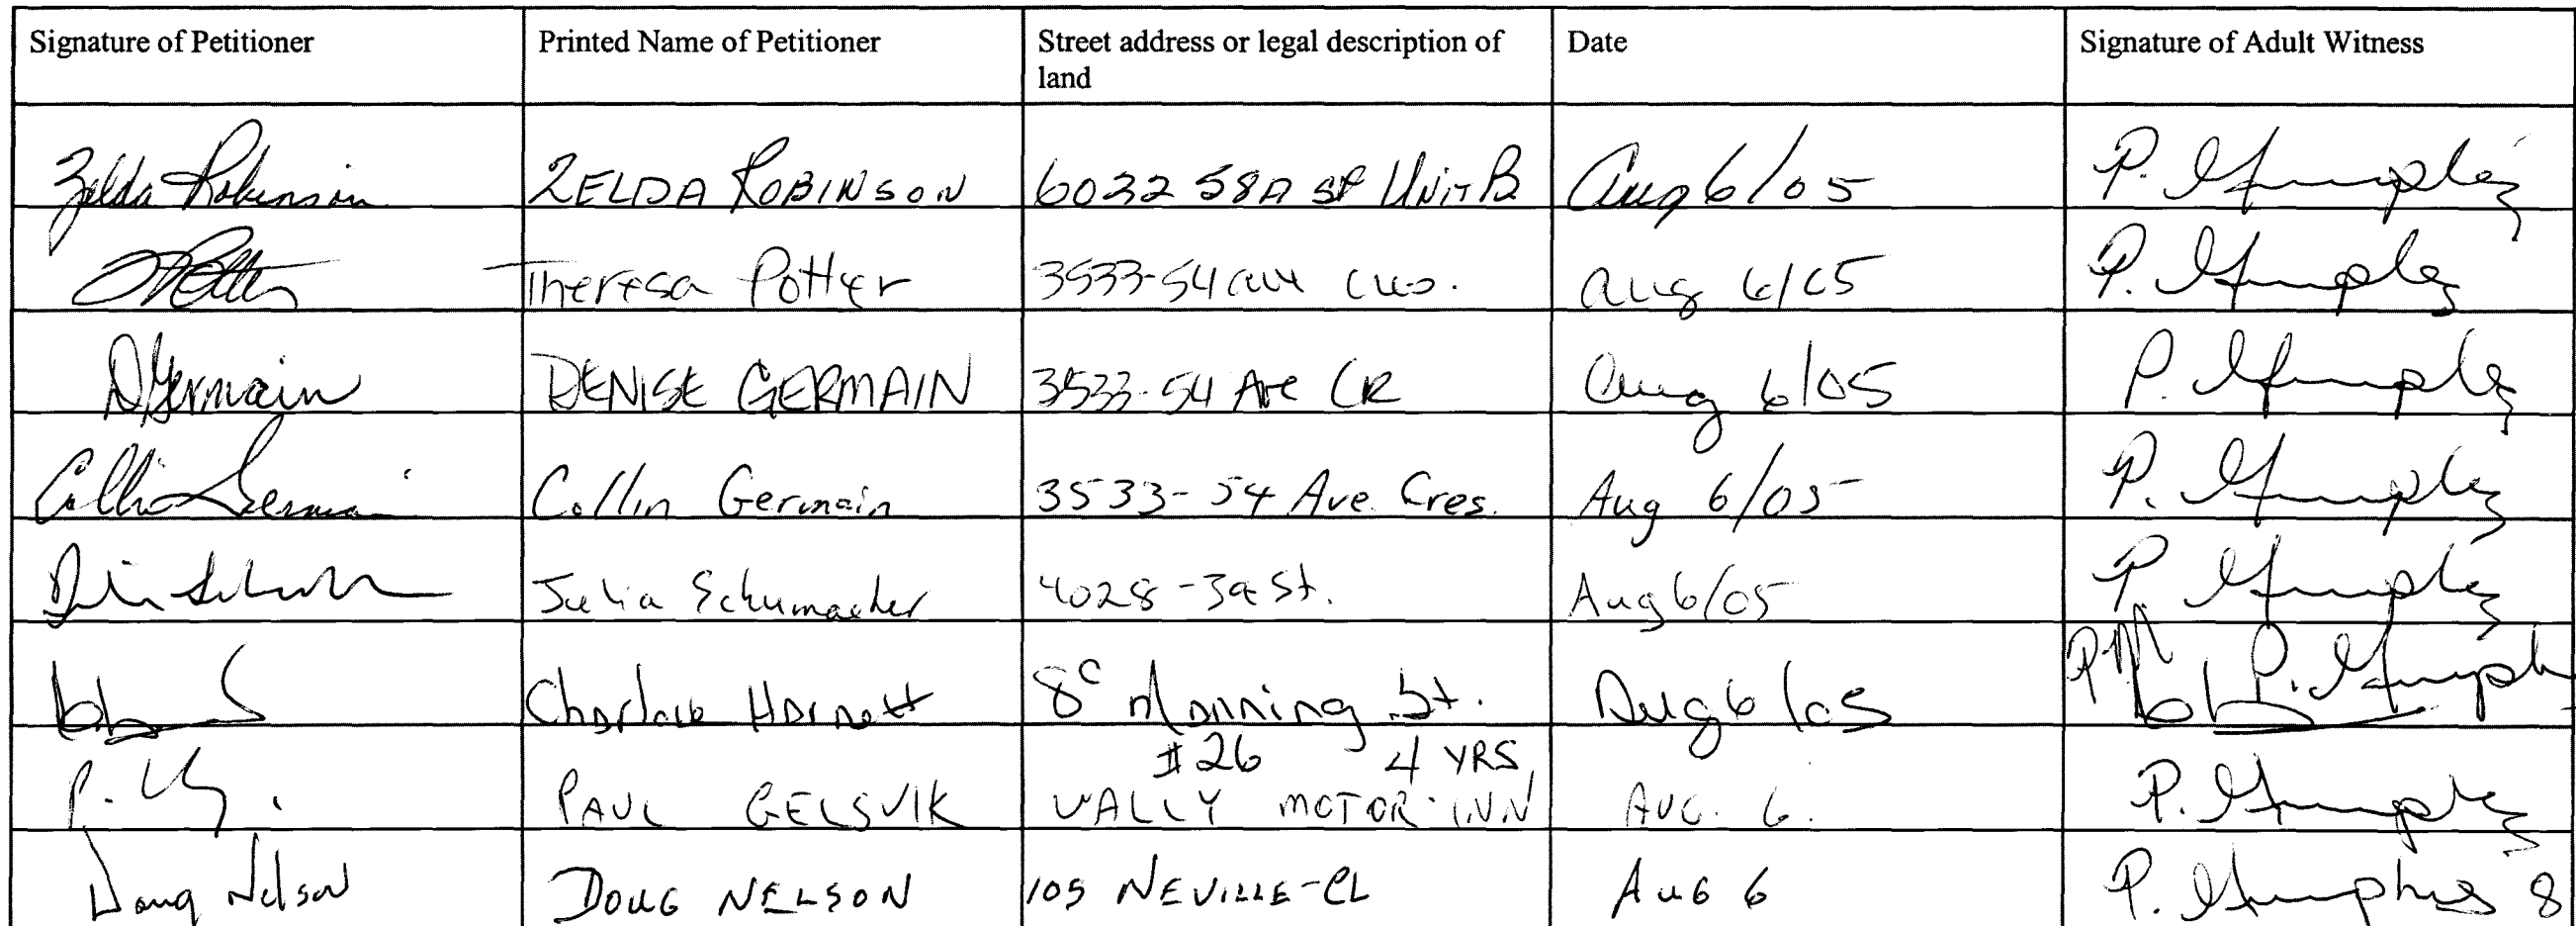 Signature of Petitioner Printed Name of Petitioner Street address or legal description of land Date Signature of Adult Witness
Zelda Robinson ZELDA ROBINSON 6032 58A St Unit B Aug 6/05 P.
Theresa Potter 3533-54 ave cres. Aug 6/05 P.
D Germain DENISE GERMAIN 3533-54 Ave CR Aug 6/05 P.
Collin Germain Collin Germain 3533-54 Ave. Cres. Aug 6/05 P.
Julia Schumacher 4028-39 St. Aug 6/05 P.
8c Manning St. Aug 6/05 P.
#26 4 YRS
P. PAUL GELSVIK VALLY MOTOR INN AUG. 6. P.
Doug Nelson DOUG NELSON 105 NEVILLE-CL Aug 6 P. 8